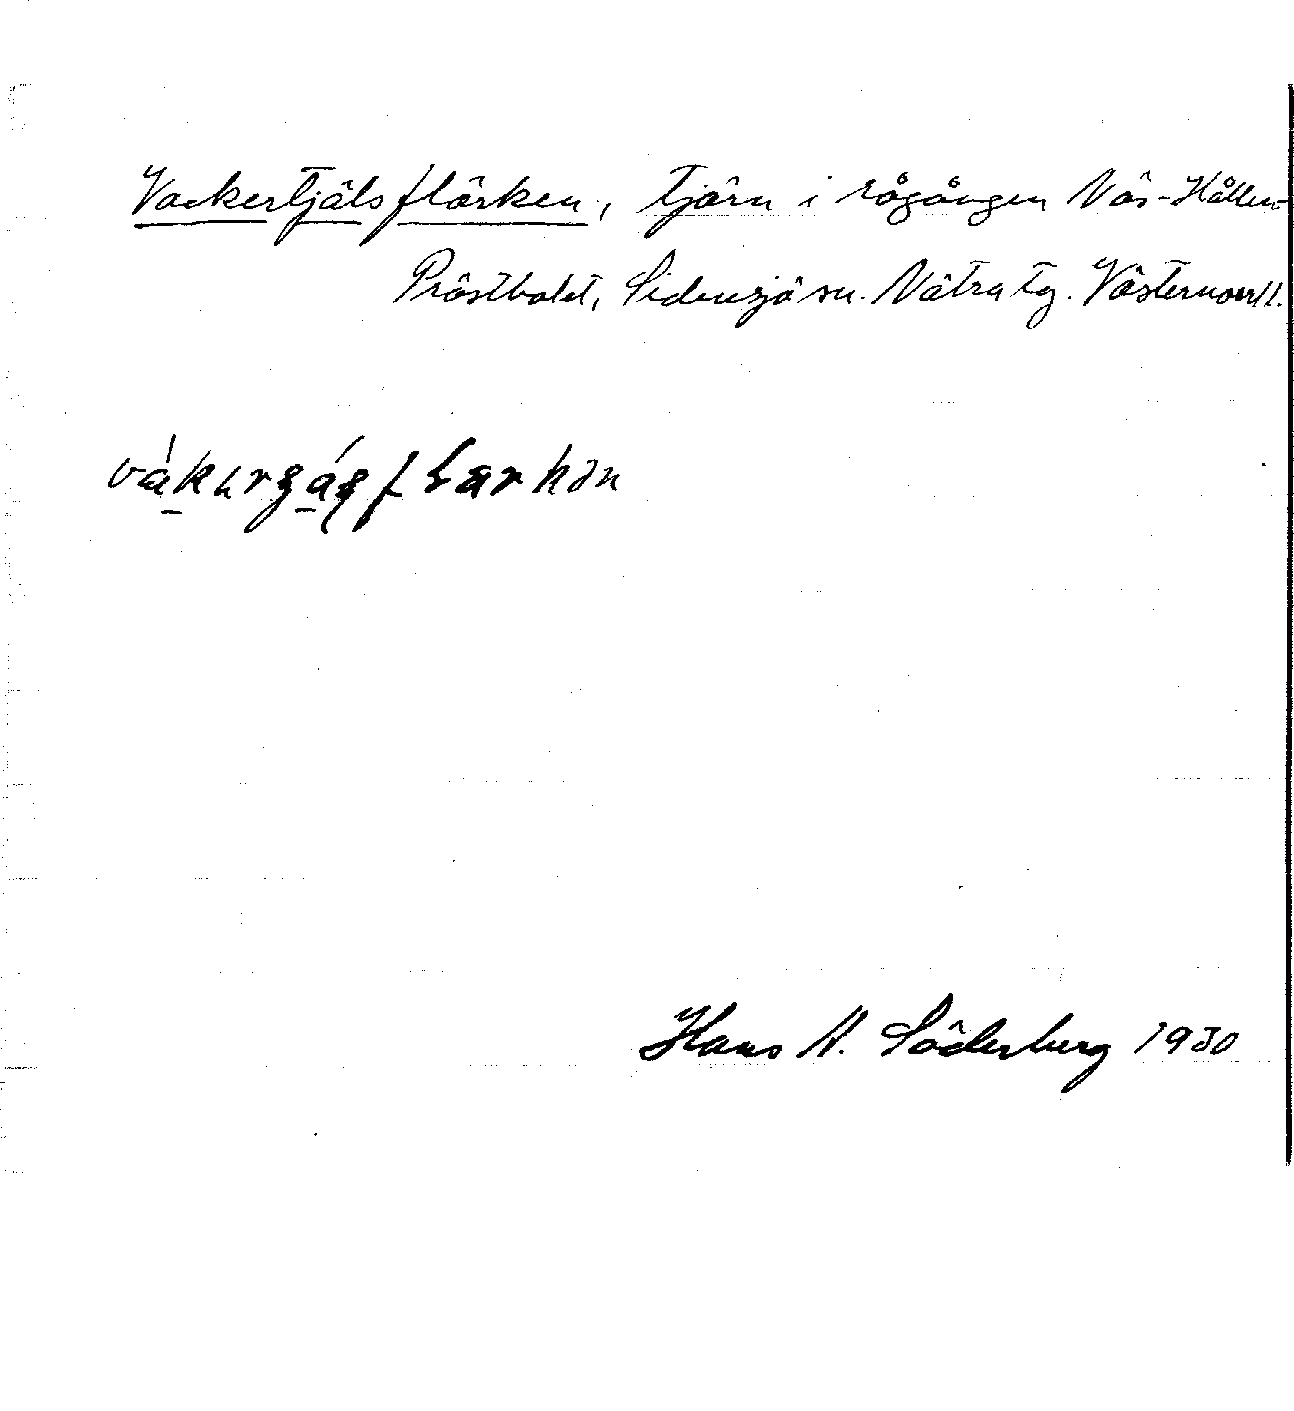 Vackertjälsflärken, tjärn i rågången Näs-Hållen-
Prästbolet, Sidensjö sn. Nätra tg. Västernorrl.
Hans N. Söderberg 1930